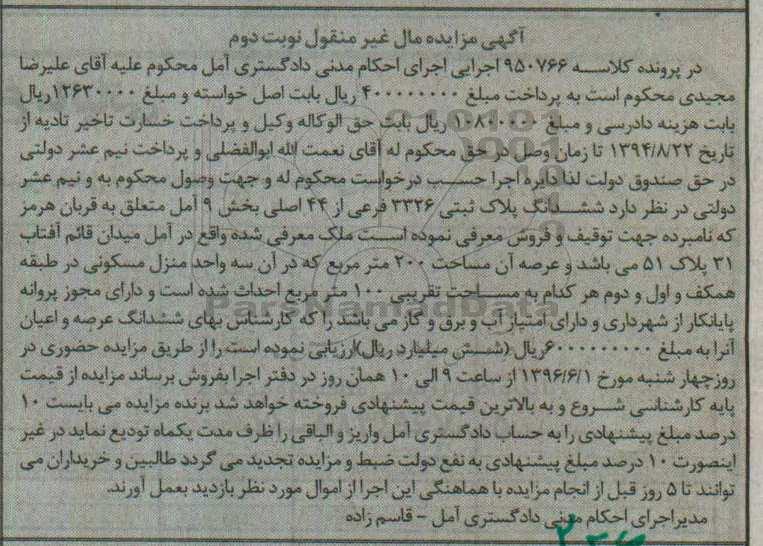 آگهی مزایده مال غیر منقول نوبت دوم
در پرونده کلاسه ۹۵۰۷۶۶ اجرایی اجرای احکام مدنی دادگستری آمل محکوم علیه آقای علیرضا
مجیدی محکوم است به پرداخت مبلغ ۴۰۰۰۰۰۰۰۰ ریال بابت اصل خواسته و مبلغ ۱۲۶۳۰۰۰۰ ریال
بابت هزینه دادرسی و مبلغ ۱۰۸۰۰۰۰۰ ریال بابت حق الوکاله وکیل و پرداخت خسارت تاخیر تادیه از
تاریخ ۱۳۹۴/۸/۲۲ تا زمان وصل در حق محکوم له آقای نعمت الله ابوالفضلی و پرداخت نیم عشر دولتی
در حق صندوق دولت لذا دایره اجرا حسب درخواست محکوم له و جهت وصول محکوم به و نیم عشر
دولتی در نظر دارد ششدانگ پلاک ثبتی ۳۳۲۶ فرعی از ۴۴ اصلی بخش ۹ آمل متعلق به قربان هرمز
که نامبرده جهت توقیف و فروش معرفی نموده است ملک معرفی شده واقع در آمل میدان قائم آفتاب
۳۱ پلاک ۵۱ می باشد و عرصه آن مساحت ۲۰۰ متر مربع که در آن سه واحد منزل مسکونی در طبقه
همکف و اول و دوم هر کدام به مساحت تقریبی ۱۰۰ متر مربع احداث شده است و دارای مجوز پروانه
پایانکار از شهرداری و دارای امتیاز آب و برق و گاز می باشد را که کارشناس بهای ششدانگ عرصه و اعیان
آنرا به مبلغ ۶۰۰۰۰۰۰۰۰۰ ریال (شش میلیارد ریال) ارزیابی نموده است را از طریق مزایده حضوری در
روز چهار شنبه مورخ ۱۳۹۶/۶/۱ از ساعت ۹ الی ۱۰ همان روز در دفتر اجرا بفروش برساند مزایده از قیمت
پایه کارشناسی شروع و به بالاترین قیمت پیشنهادی فروخته خواهد شد برنده مزایده می بایست ۱۰
درصد مبلغ پیشنهادی را به حساب دادگستری آمل واریز و الباقی را ظرف مدت یکماه تودیع نماید در غیر
اینصورت ۱۰ درصد مبلغ پیشنهادی به نفع دولت ضبط و مزایده تجدید می گردد طالبین و خریداران می
توانند تا ۵ روز قبل از انجام مزایده با هماهنگی این اجرا از اموال مورد نظر بازدید بعمل آورند.
مدیر اجرای احکام مدنی دادگستری آمل - قاسم زاده
ParsNamadData